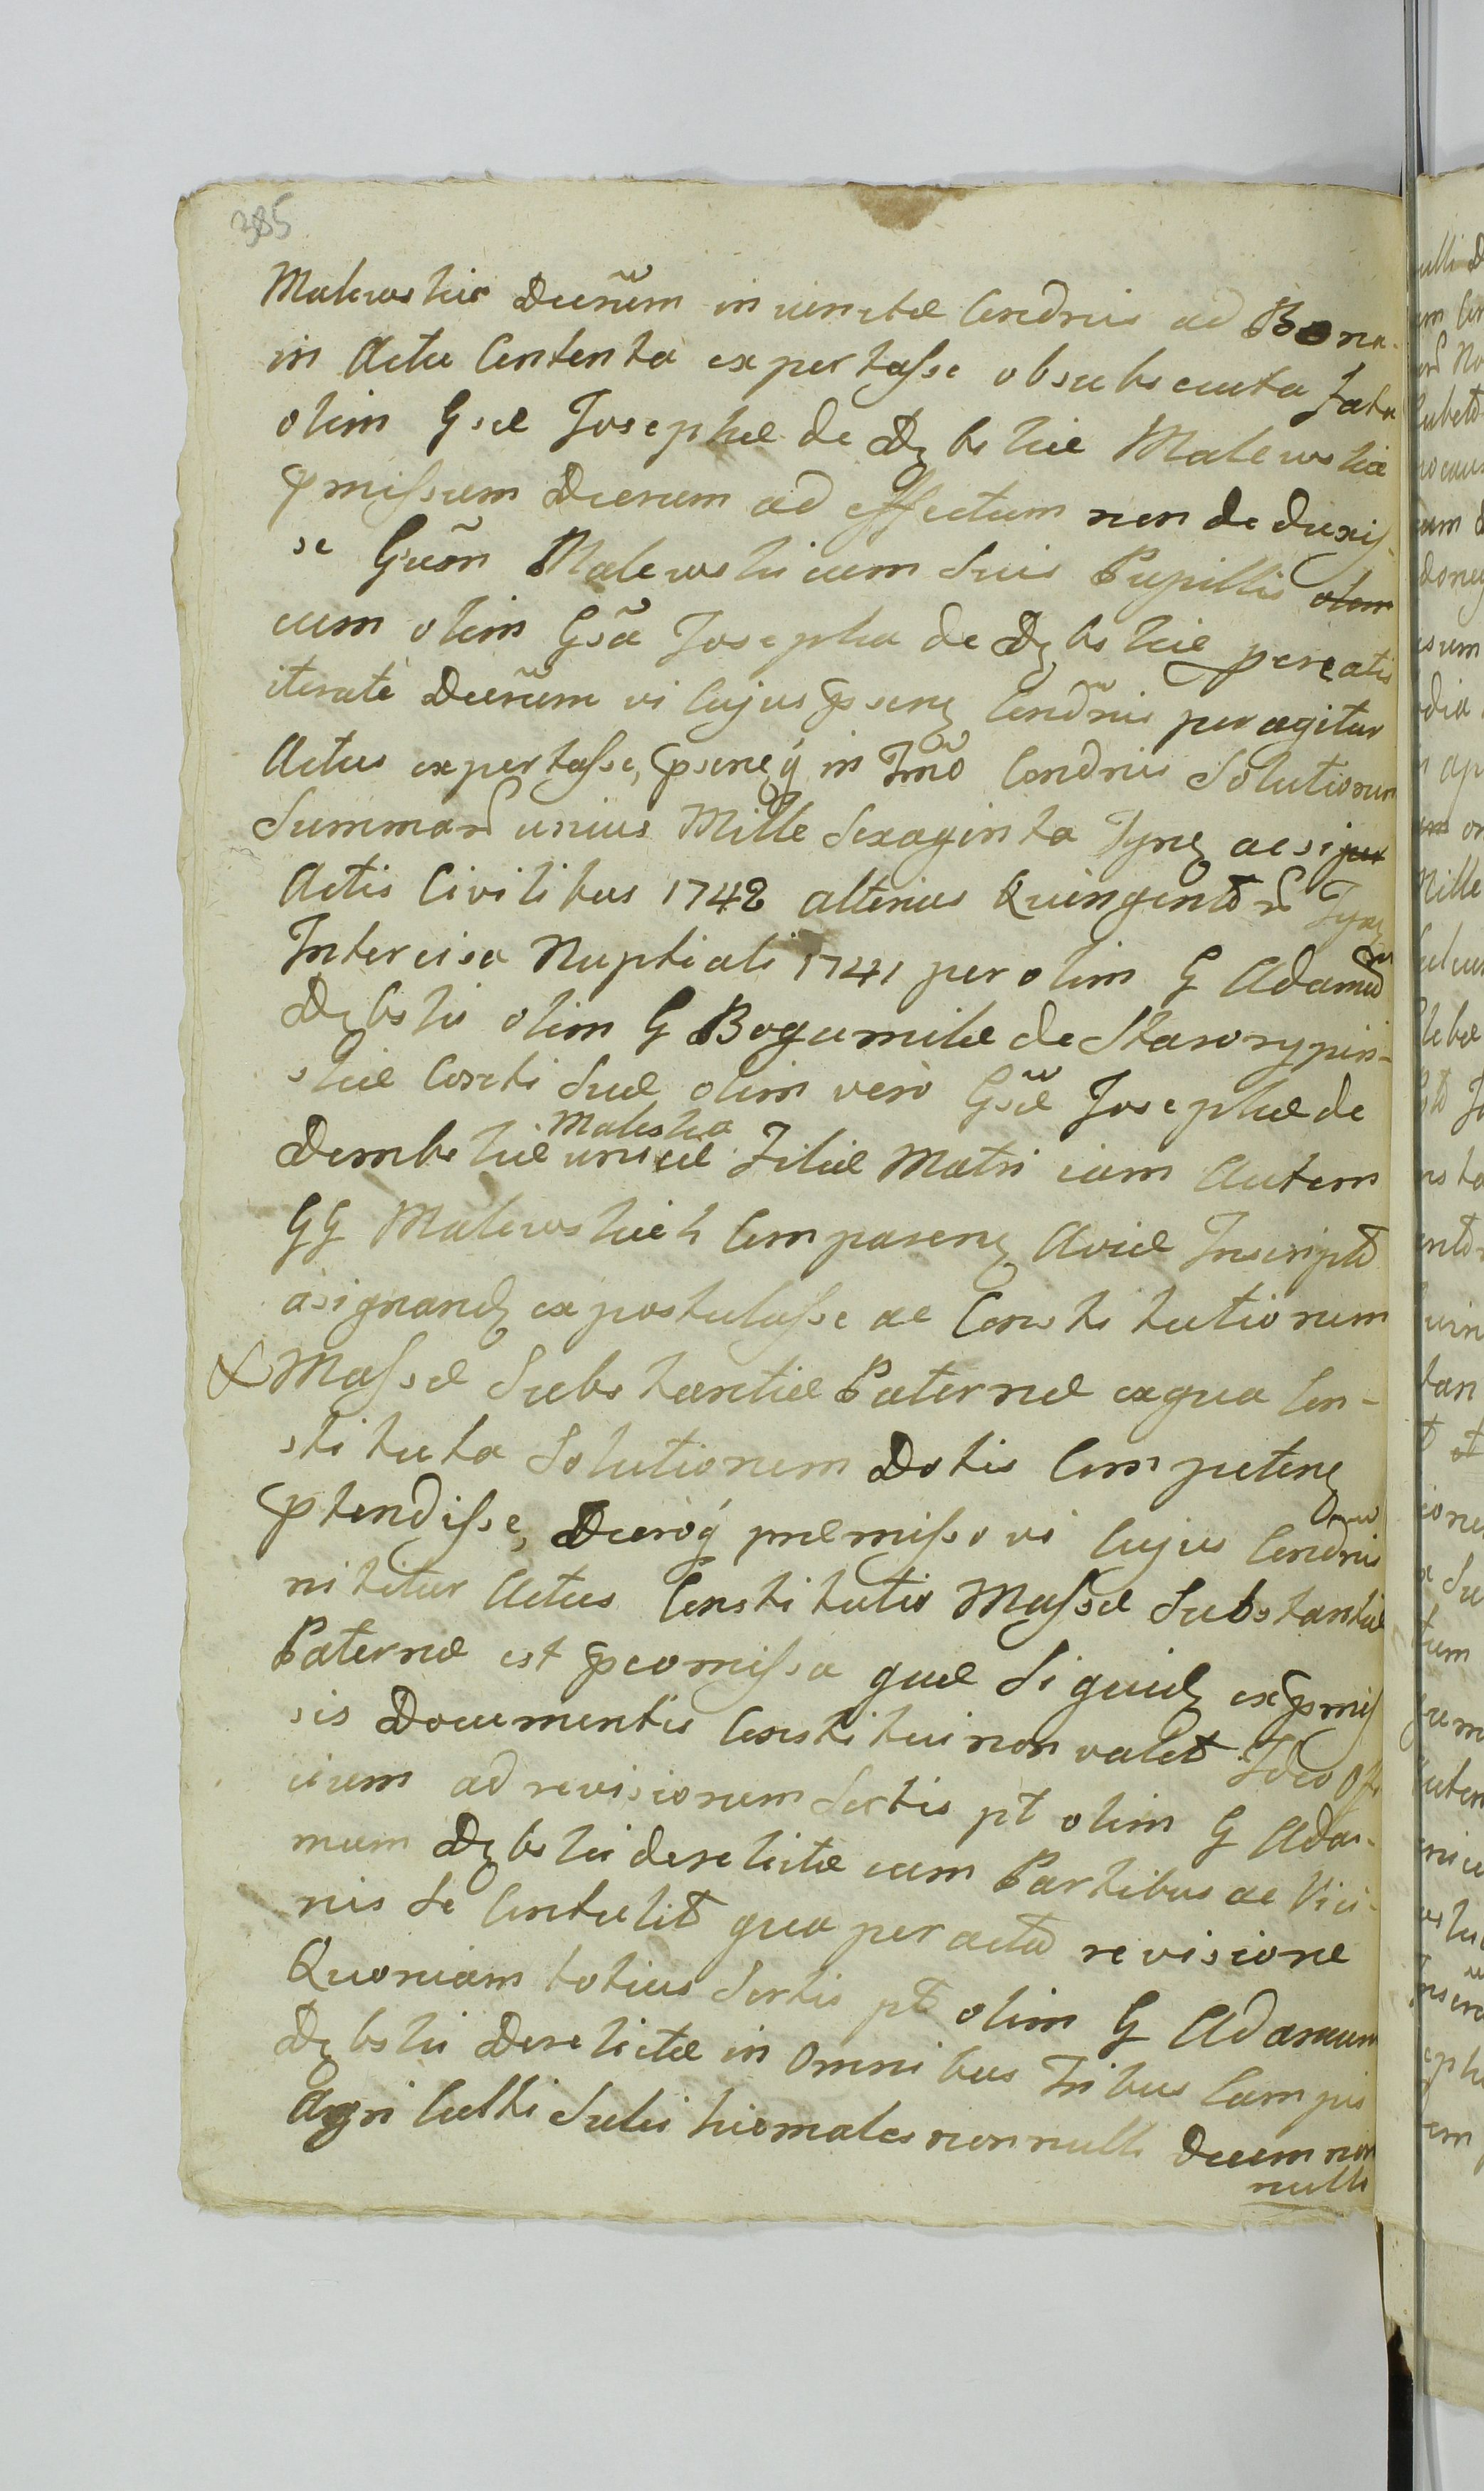 385
Malewskie Decrũm in vim stæ Condnis ad Bona
in Actu Contenta expertasse ob subsecuta Fata
olim Gsæ Josephæ de Dębskie Malewska
pmissum Decrum ad effectum non deduxis-
se Gsum̃ Malewski cum Suis Pupillis olim
cum olim Gsã Josepha de Dębskie pcreatis
iteratè Decrũm vi Cujus psenę Condñis peragitur
Actus expertasse, pseneq́ in Tm̃o Condnis Solutionem
Summarũ unius Mille Sexaginta Tynę ac si per
Actis Civilibus 1742 alterius Quingentorũ Tynę
Intercisa Nuptiali 1741 per olim G Adamũ
Dębski olim G Bogumilæ de Skarorypin-
skie Conthi Suæ olim verò Gsæ̃ Josephæ de
Dembskie Malewska unicæ Filiæ Matri iam Autem
GG Malewskich Comparenę Aviæ Inscriptũ
asignandę expostulasse ac Constitutionem
Massæ Substantiæ Paternæ ex qua Con-
stituta Solutionem Dotis Competenę
ptendisse, Decroq́ præmisso vi Cujus Condnis
nititur Actus Constitutio Massæ Substantiæ
Paternæ est pcomissa quæ Siquidę ex pmis-
sis Documentis Constitui non valet Ideo Offi-
cium ad revisionem Sortis pt olim G Ada-
mum Dębski derelictæ cum Partibus ac Vici-
nis Se Contulit qua peractã revisione
Quoniam totius Sortis pt olim G Adamum
Dębski Derelictæ in Omnibus Tribus Campis
Agri Culti Sulci hiemales nonnulli Decem non
nulli